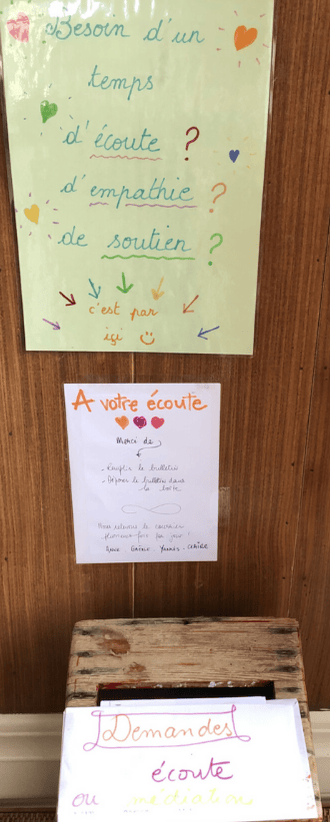 Besoin d'un
temps
d'écoute ?
d'empathie ?
de soutien ?
c'est par
içi
A votre écoute
Merci de
- Remplir le bulletin
- Déposer le bulletin dans
la boîte
Nous relevons le courrier
plusieurs fois par jour !
Demandes
écoute
ou médiation